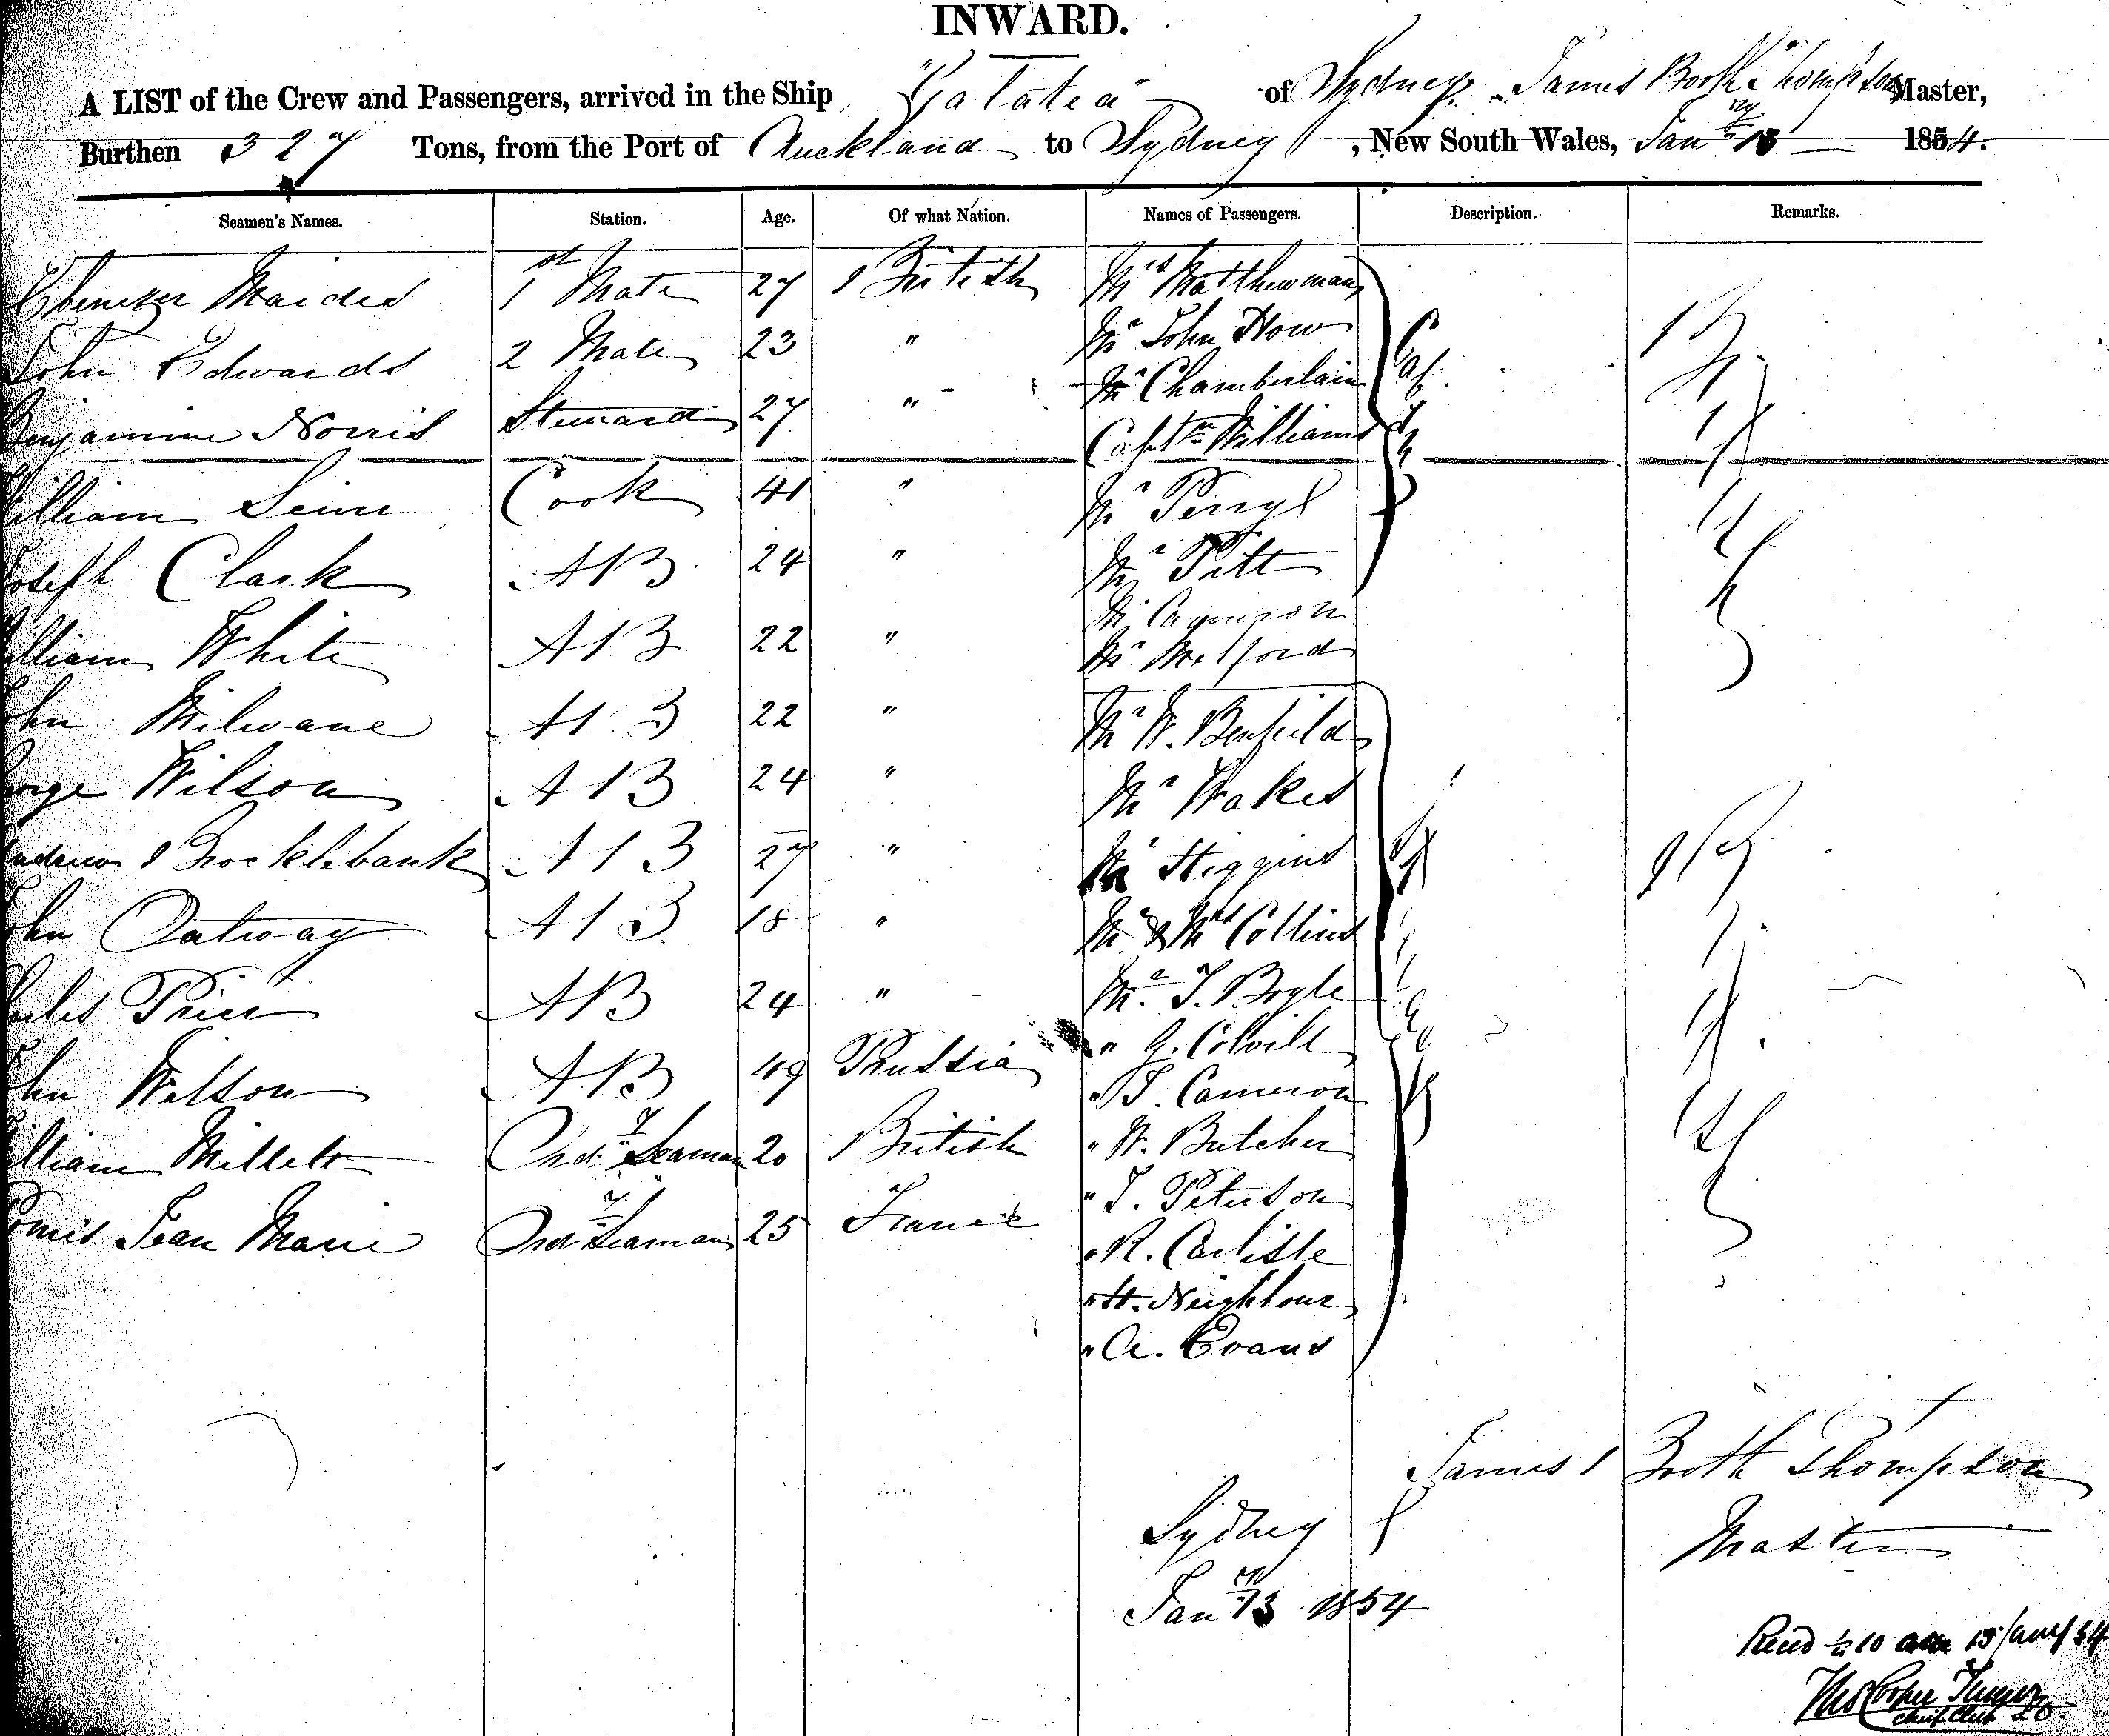 INWARD.
A LIST of the Crew and Passengers, arrived in the Ship "Galatea" of Sydney James Booth Thompson Master,
Burthen 327 Tons, from the Port of Auckland to Sydney, New South Wales, Jan ry 13 1854.
Seamen's Names. Station. Age. Of what Nation. Names of Passengers. Description. Remarks.
Ebenezer Maides 1st Mate 27 British Mrs Matthewman
John Edwards 2 Mate 23 " Mr John How
Benjamine Norris Steward 27 " Mr Chamberlain
Captn Williams
William Cook 41 " Mr
Joseph Clark AB 24 " Mr Pitt
William White AB 22 " Mr Cameron
Mr Melford
John Milwane AB 22 " Mr W. Benfield
George Wilson AB 24 " Mr Wakes
Brocklebank AB 27 " Mr Higgins
John Oatway AB 18 " Mr & Mrs Collins
Charles Price AB 24 " Mr. T. Boyle
" G. Colvill
John Wilson AB 49 Prussia " J. Cameron
William Millett Ordy Seaman 20 British " W. Butcher
" J. Peterson
Jean Marie Ordy Seaman 25 France " R. Carlisle
" H. Neighbour
" A. Evans
James Booth Thompson
Sydney Master
Jan ry 13 1854
Recd ½ 10 am 13 Jany 54
Thos Cooper Turner
Chief Clerk